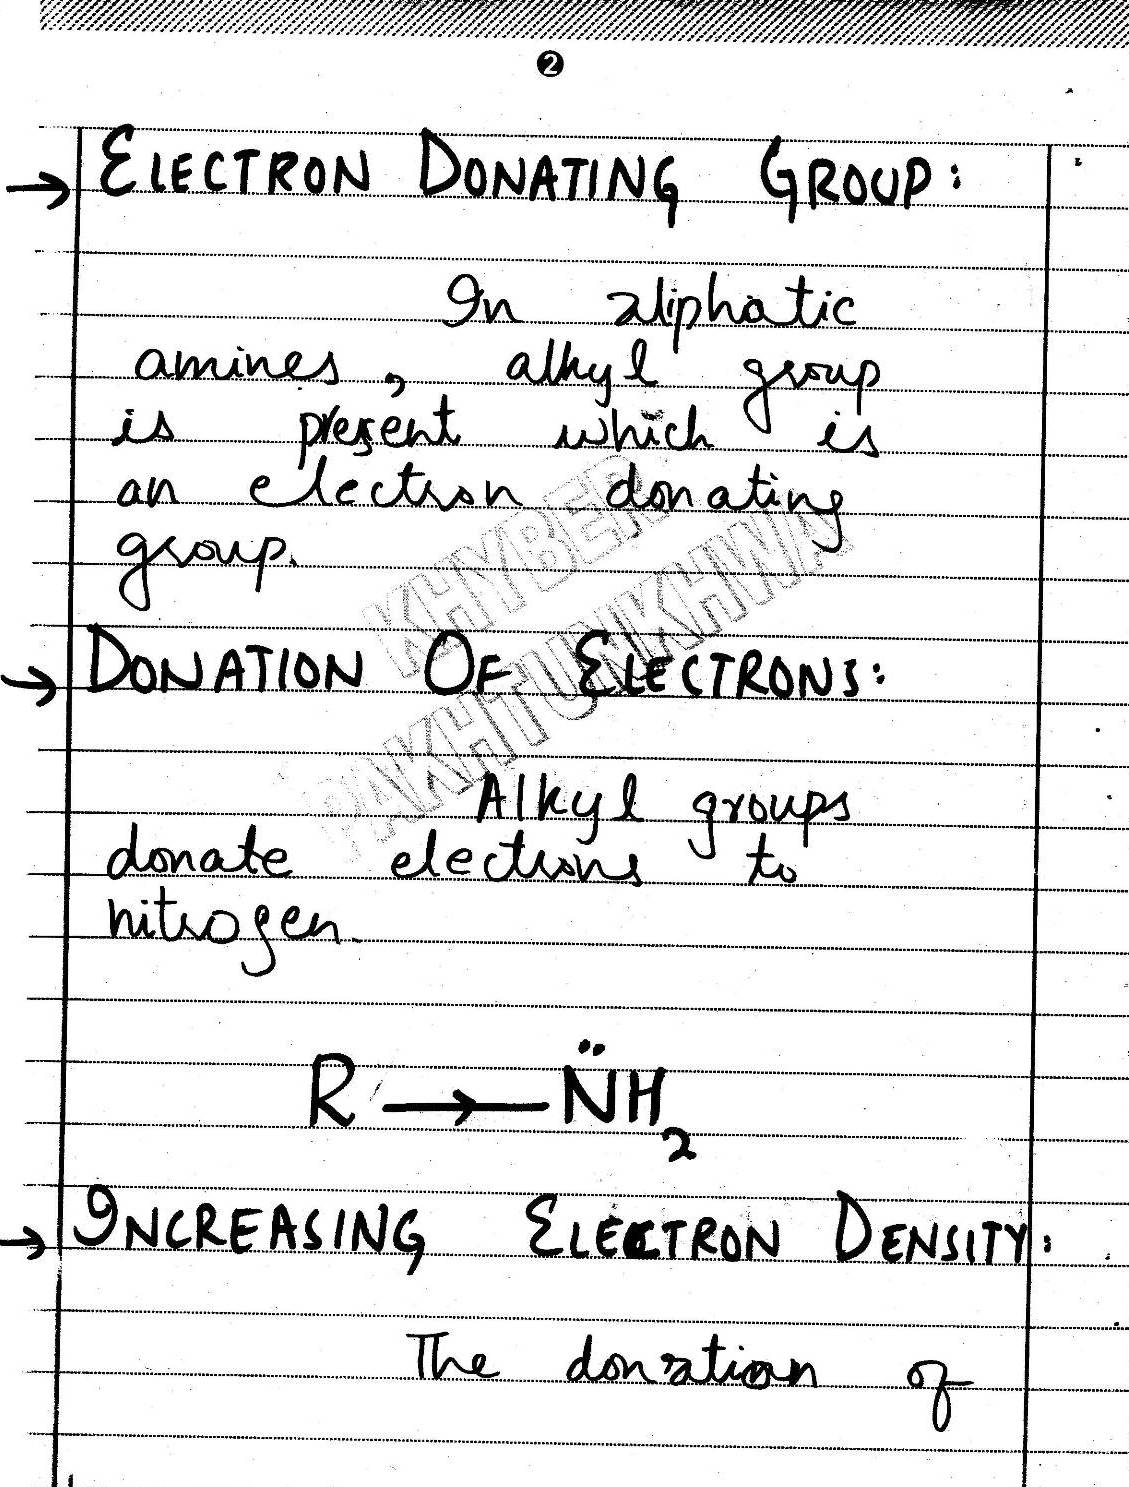 ❷
→ ELECTRON DONATING GROUP:
In aliphatic
amines, alkyl group
is present which is
an electron donating
group.
KHYBER
PAKHTUNKHWA
→ DONATION OF ELECTRONS:
Alkyl groups
donate electrons to
nitrogen.
R → N̈H₂
→ INCREASING ELECTRON DENSITY:
The donation of